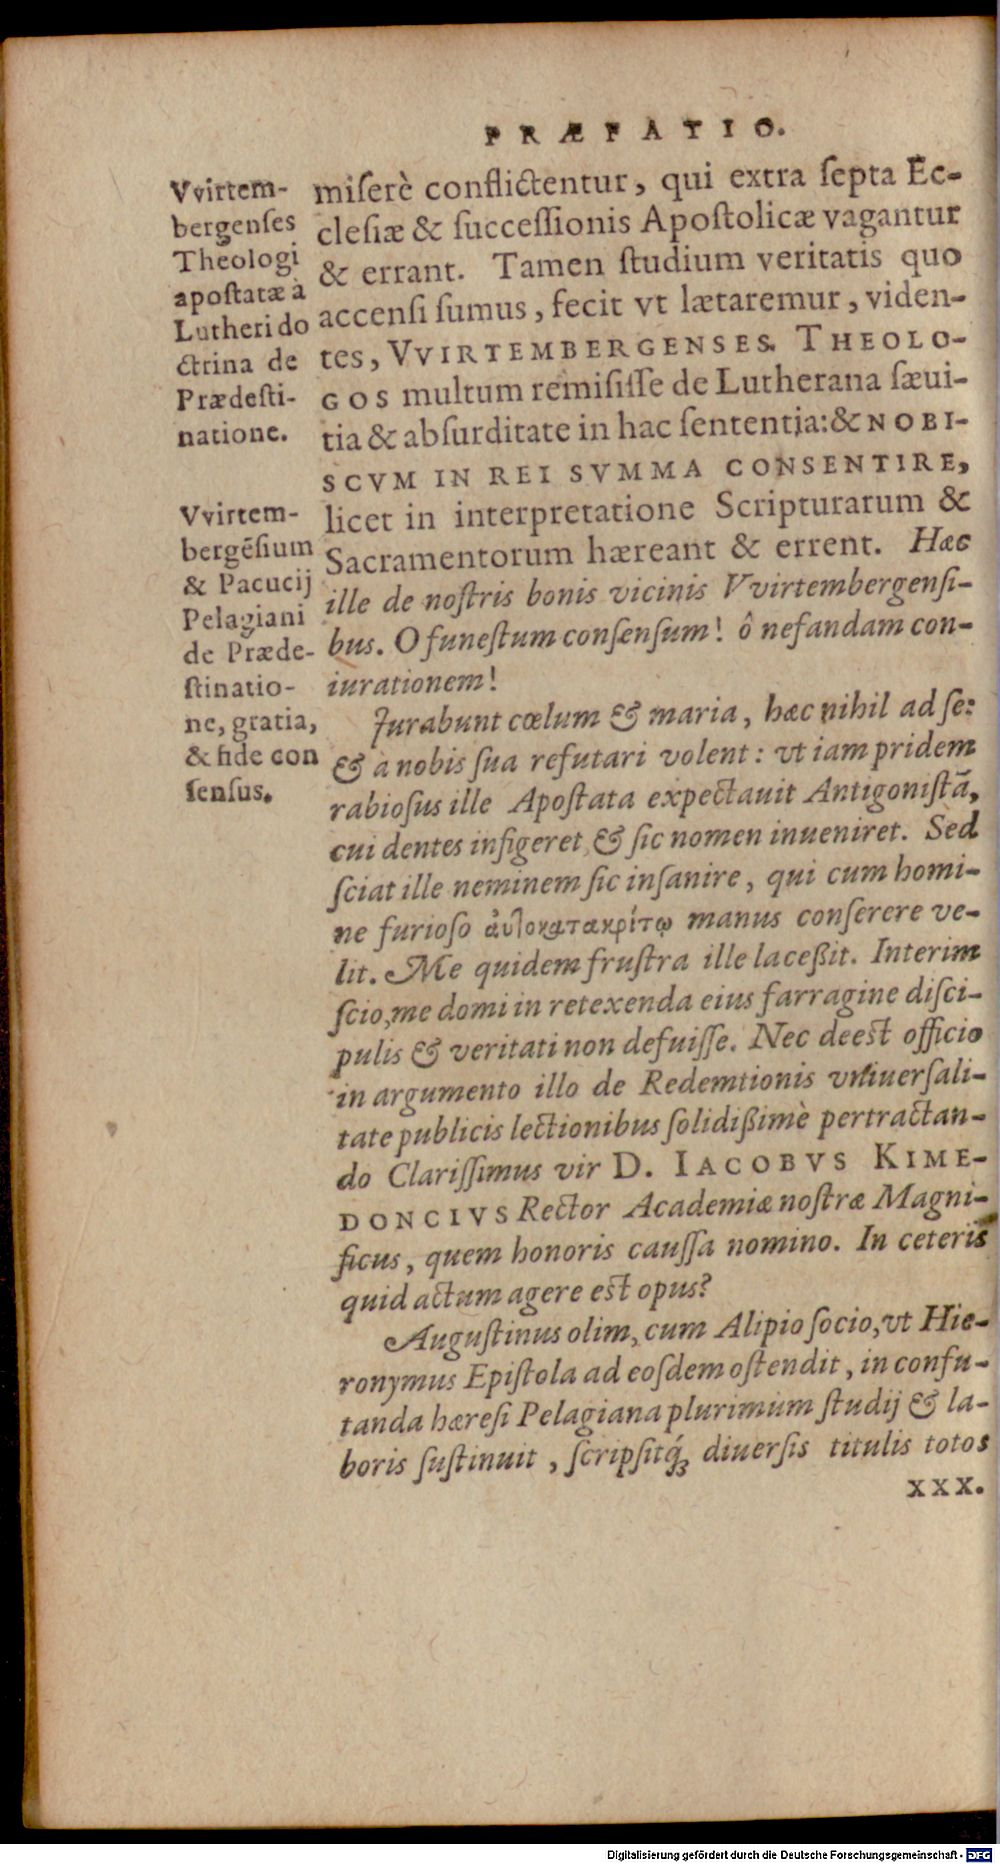 PRÆFATIO.
Vvirtem-
bergenſes
Theologi
apoſtatæ à
Lutheri do
ctrina de
Prædeſti-
natione.
Vvirtem-
bergēſium
& Pacucij
Pelagiani
de Præde-
ſtinatio-
ne, gratia,
& fide con
ſenſus.
miſerè conflictentur, qui extra ſepta Ec-
cleſiæ & ſucceſſionis Apoſtolicæ vagantur
& errant. Tamen ſtudium veritatis quo
accenſi ſumus, fecit vt lætaremur, viden-
tes, VVIRTEMBERGENSES THEOLO-
GOS multum remiſiſſe de Lutherana ſæui-
tia & abſurditate in hac ſententia: & NOBI-
SCVM IN REI SVMMA CONSENTIRE,
licet in interpretatione Scripturarum &
Sacramentorum hæreant & errent. Hæc
ille de noſtris bonis vicinis Vvirtembergenſi-
bus. O funeſtum conſenſum! ô nefandam con-
iurationem!
Jurabunt cœlum & maria, hæc nihil ad ſe:
& à nobis ſua refutari volent: vt iam pridem
rabioſus ille Apoſtata expectauit Antigoniſtā,
cui dentes infigeret, & ſic nomen inueniret. Sed
ſciat ille neminem ſic inſanire, qui cum homi-
ne furioſo αὐτοκατακρίτῳ manus conſerere ve-
lit. Me quidem fruſtra ille laceßit. Interim
ſcio, me domi in retexenda eius farragine diſci-
pulis & veritati non defuiſſe. Nec deeſt officio
in argumento illo de Redemtionis vniuerſali-
tate publicis lectionibus ſolidißimè pertractan-
do Clariſſimus vir D. IACOBVS KIME-
DONCIVS Rector Academiæ noſtræ Magni-
ficus, quem honoris cauſſa nomino. In ceteris
quid actum agere eſt opus?
Auguſtinus olim, cum Alipio ſocio, vt Hie-
ronymus Epiſtola ad eoſdem oſtendit, in confu-
tanda hæreſi Pelagiana plurimum ſtudij & la-
boris ſuſtinuit, ſcripſitq́ꝫ diuerſis titulis totos
XXX.
Digitalisierung gefördert durch die Deutsche Forschungsgemeinschaft - DFG